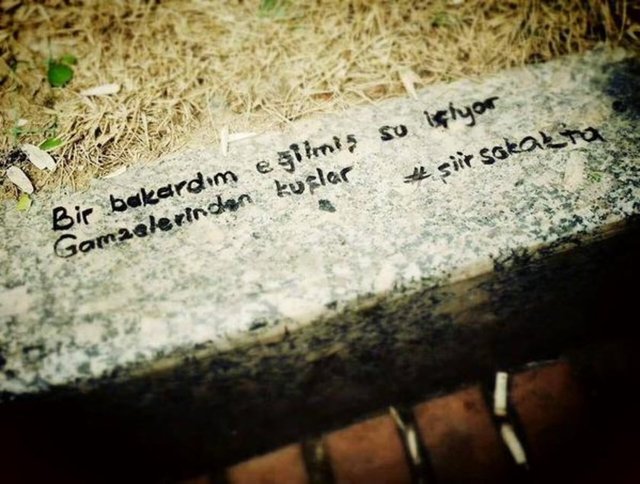 Bir bakardım eğilmiş su içiyor
Gamzelerinden kuşlar #şiirsokakta